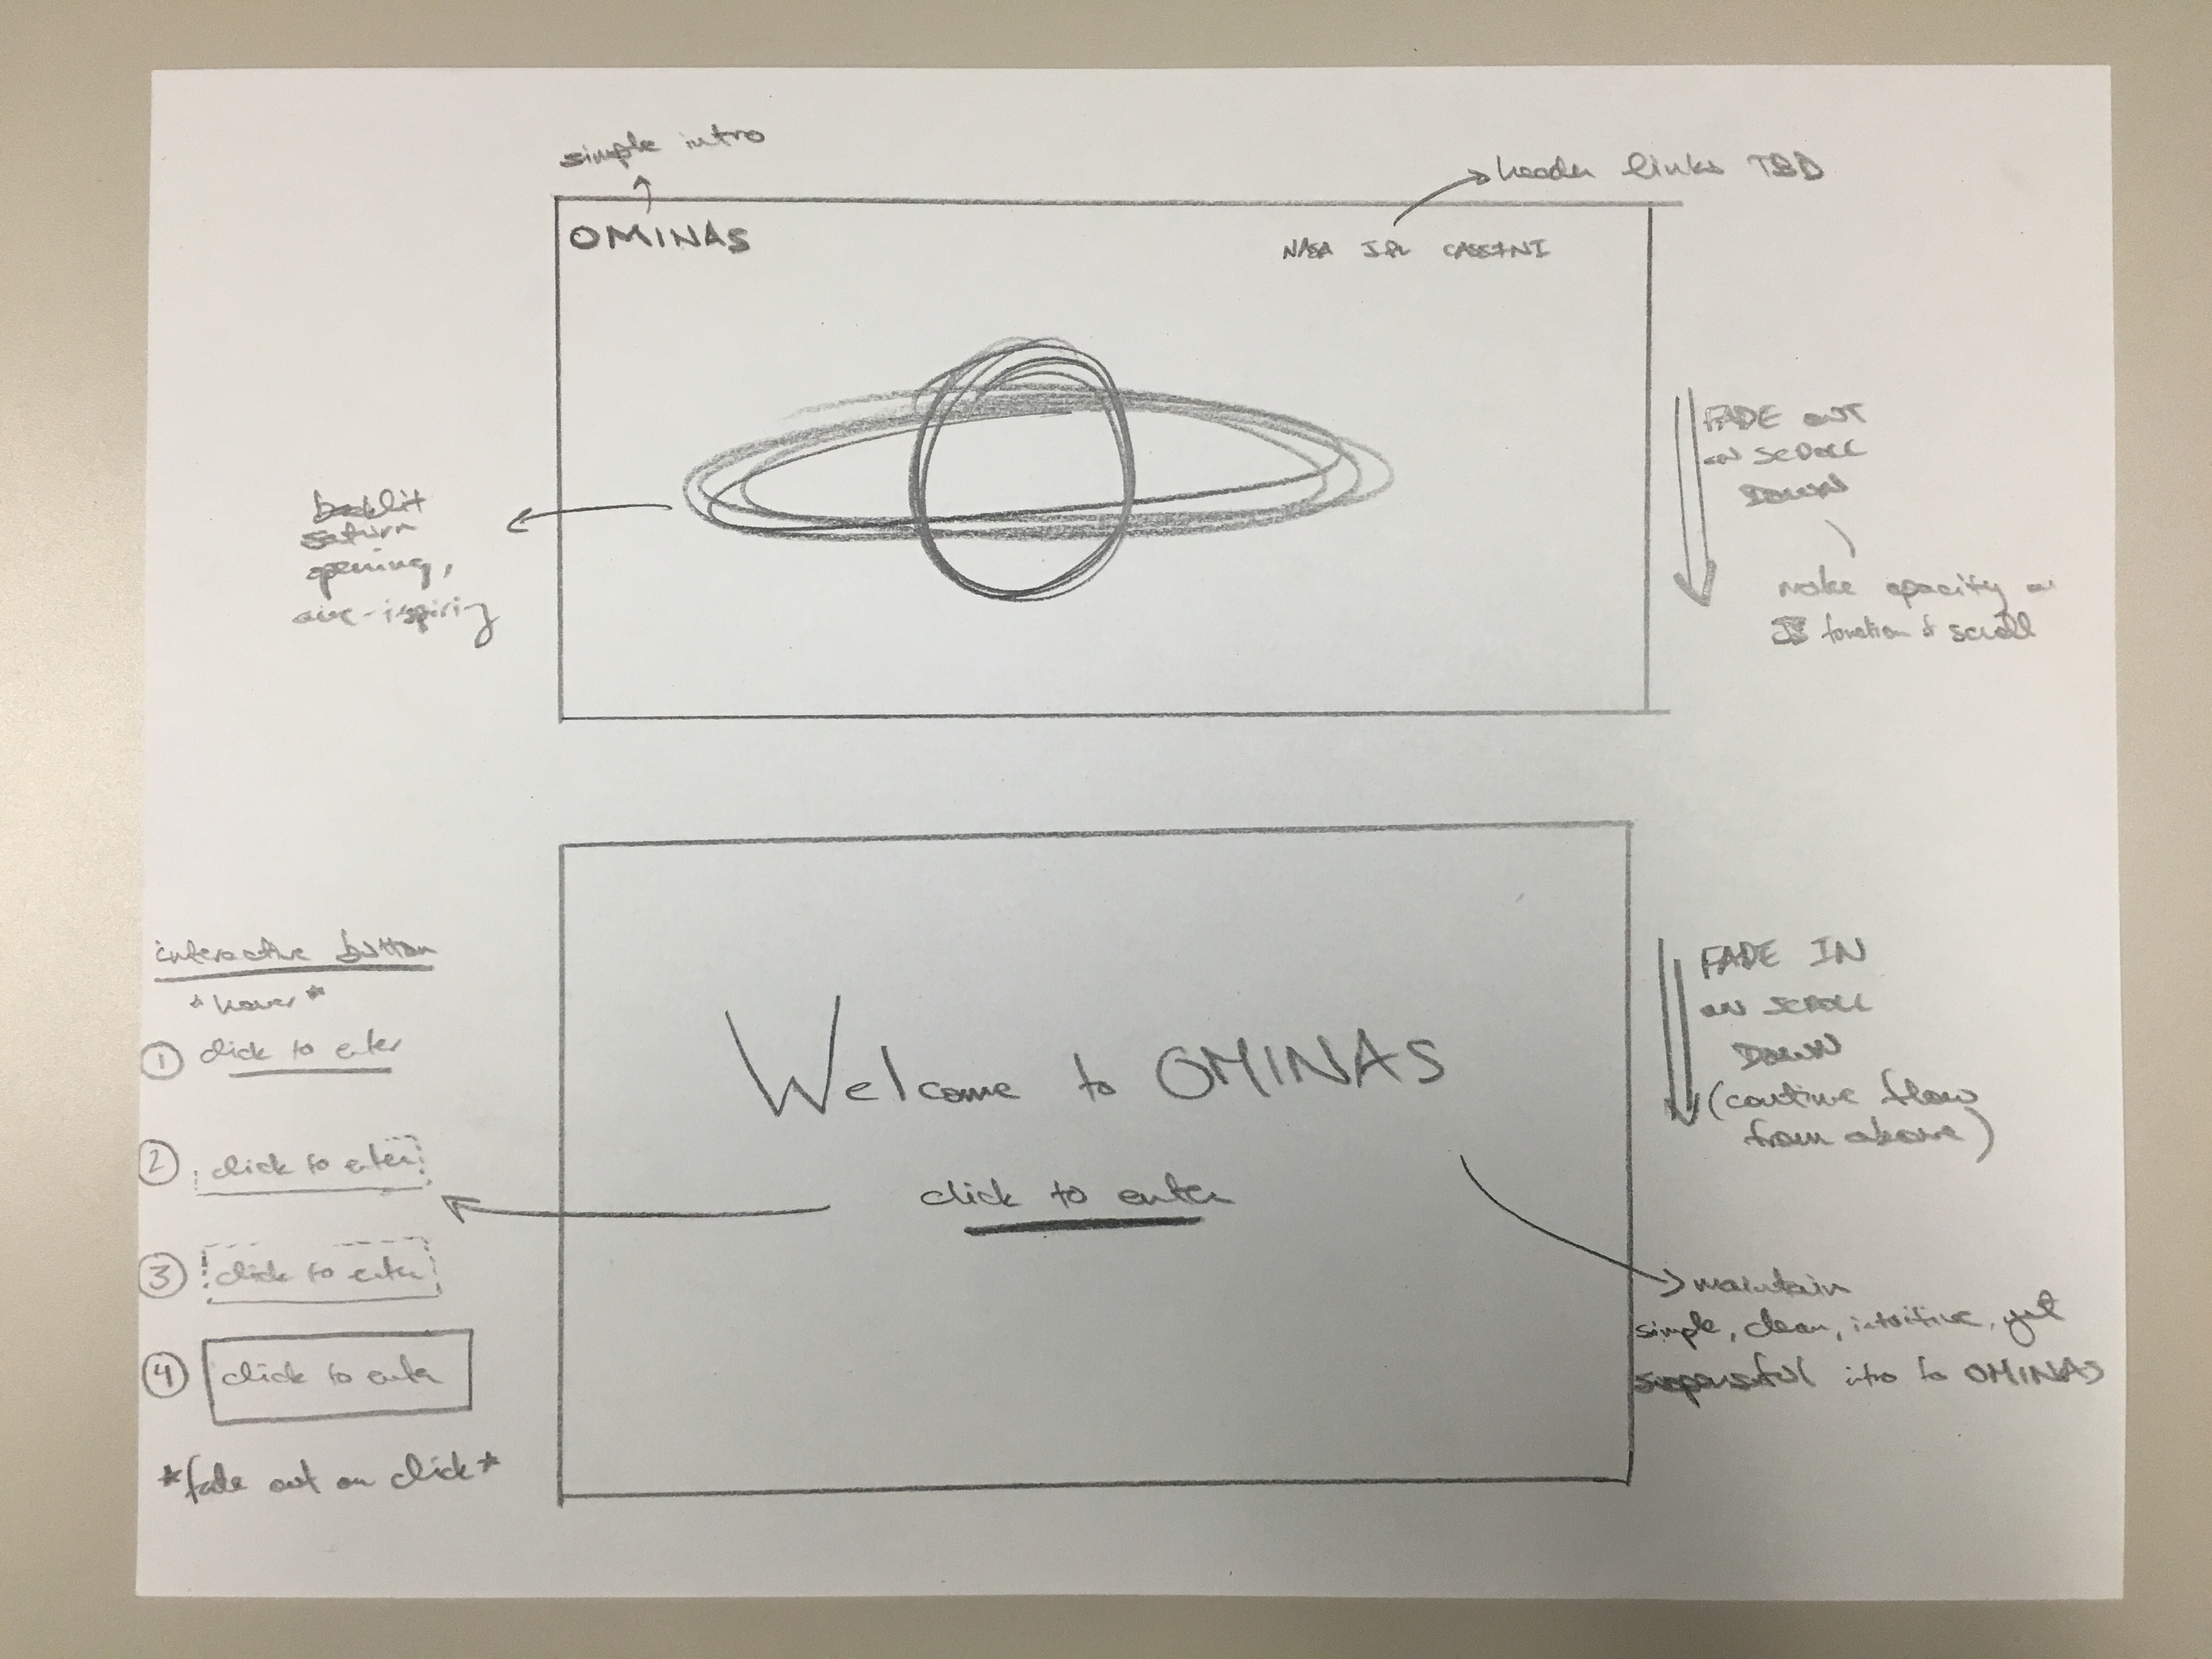 simple intro
header links TBD
OMINAS
NASA JPL CASSINI
backlit
saturn
opening,
awe-inspiring
FADE OUT
ON SCROLL
DOWN
make opacity a
JS function of scroll
interactive button
*hover*
① click to enter
② click to enter
③ click to enter
④ click to enter
*fade out on click*
Welcome to OMINAS
click to enter
FADE IN
ON SCROLL
DOWN
(continue flow
from above)
maintain
simple, clean, intuitive, yet
suspenseful intro to OMINAS